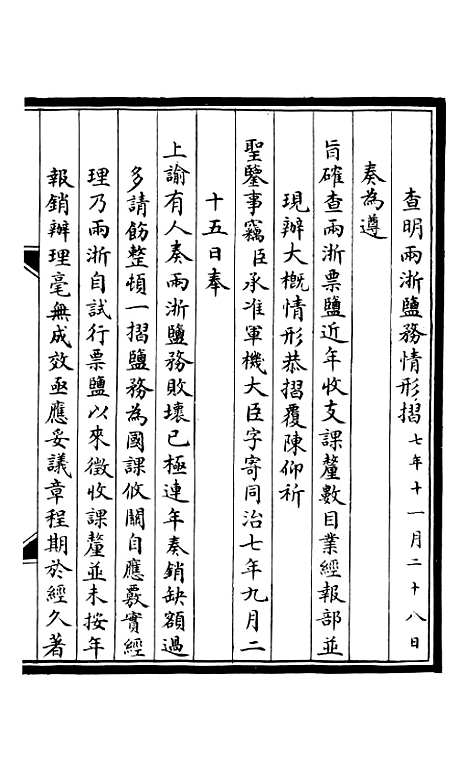 查明兩浙鹽務情形摺七年十一月二十八日
奏為遵
旨確查兩浙票鹽近年收支課釐數目業經報部並
現辦大概情形恭摺覆陳仰祈
聖鑒事竊臣承准軍機大臣字寄同治七年九月二
十五日奉
上諭有人奏兩浙鹽務敗壞已極連年奏銷缺額過
多請飭整頓一摺鹽務為國課攸關自應覈實經
理乃兩浙自試行票鹽以來徵收課釐並未按年
報銷辦理毫無成效亟應妥議章程期於經久著